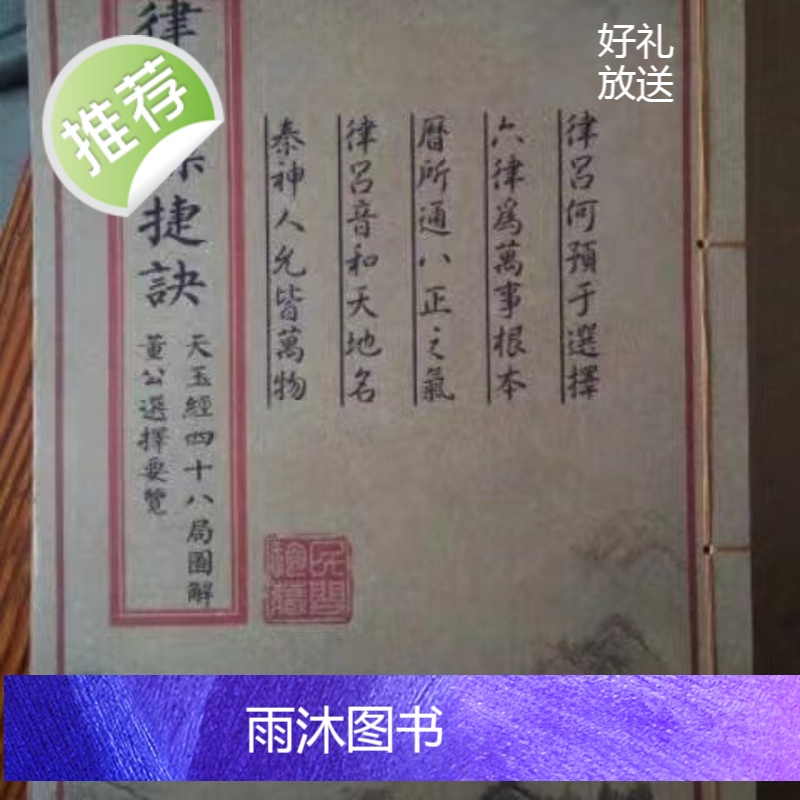 好礼
放送
推荐
律
捷訣
天玉經四十八局圖解
董公選擇要覽
律呂何預于選擇
六律爲萬事根本
曆所通八正之氣
律呂音和天地名
泰神人允皆萬物
雨沐图书